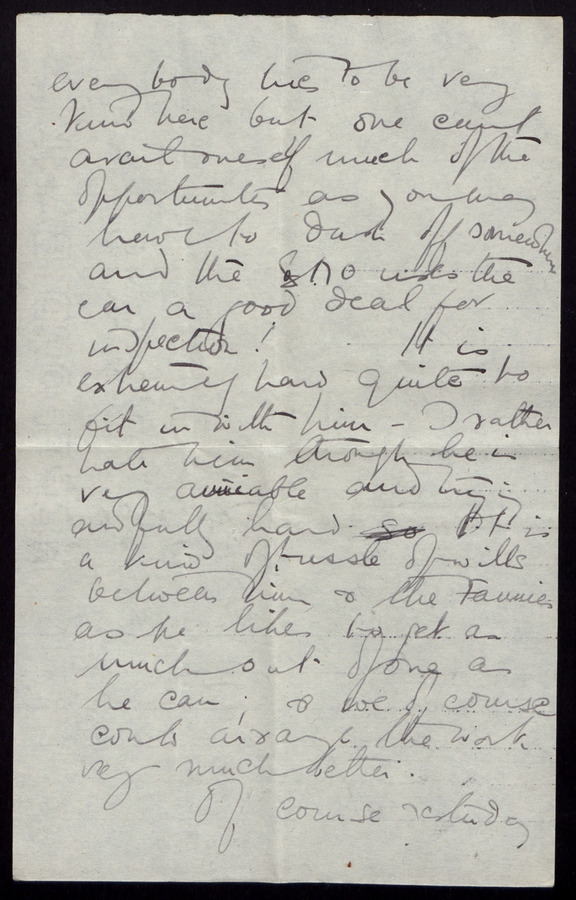 everybody tries to be very
kind here but one can't
avail oneself much of the
opportunities as you may
have to dash off somewhere
and the D.O uses the
car a good deal for
inspection! It is
extremely hard quite to
fit in with him – I rather
hate him though he is
very amiable and trying
awfully hard so It is
a kind of tussle of wills
between him & the Fannies
as he likes to get as
much out of one as
he can; & we of course
could arrange the work
very much better.
Of course yesterday